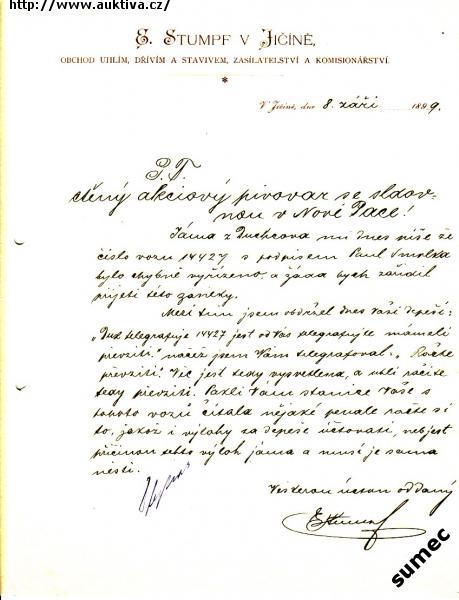 http://www.auktiva.cz/
E. STUMPF V JIČÍNĚ,
OBCHOD UHLÍM, DŘÍVÍM A STAVIVEM, ZASÍLATELSTVÍ A KOMISIONÁŘSTVÍ.
V Jičíně, dne 8. září 1899.
P. T.
ctěný akciový pivovar se sladov-
nou v Nové Pace!
Jáma z Duchcova mi dnes píše že
číslo vozu 14427 s podpisem Paul Smolka
bylo chybně vyřízeno, a žádá bych zařídil
přijetí této zásilky.
Mezi tím jsem obdržel dnes Vaši depeši:
„Dux telegrafuje 14427 jest od Vás telegrafujte mámeli
převzíti." načež jsem Vám telegrafoval „Račte
převzíti". Věc jest tedy vysvětlena, a uhlí račte
tedy převzíti. Vám stanice Vaše s
tohoto vozu čítala nějaké penale račte si
to, jakož i výlohy za depeše účtovati, neb jest
příčinou těchto výloh jáma a musí je sama
nésti.
Veškerou úctou oddaný
EStumpf
sumec